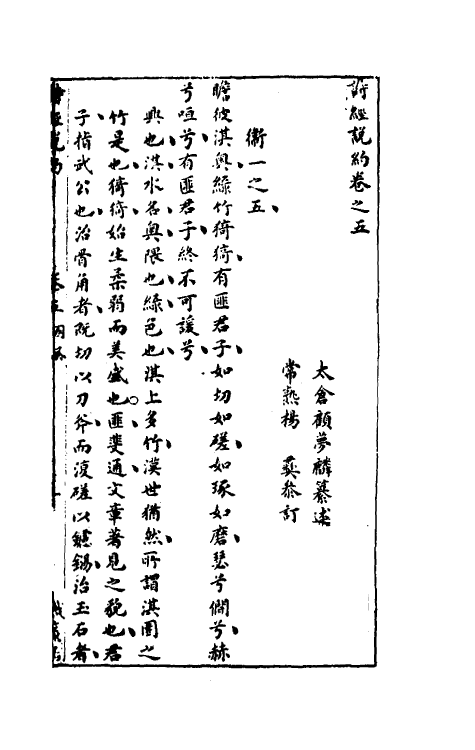 詩經說約卷之五
太倉顧夢麟纂述
常熟楊彝叅訂
衛一之五
瞻彼淇奧綠竹猗猗有匪君子如切如磋如琢如磨瑟兮僩兮赫
兮咺兮有匪君子終不可諼兮
興也淇水名奧隈也綠色也淇上多竹漢世猶然所謂淇園之
竹是也猗猗始生柔弱而美盛也匪斐通文章著見之貌也君
子指武公也治骨角者旣切以刀斧而復磋以鑢鍚治玉石者